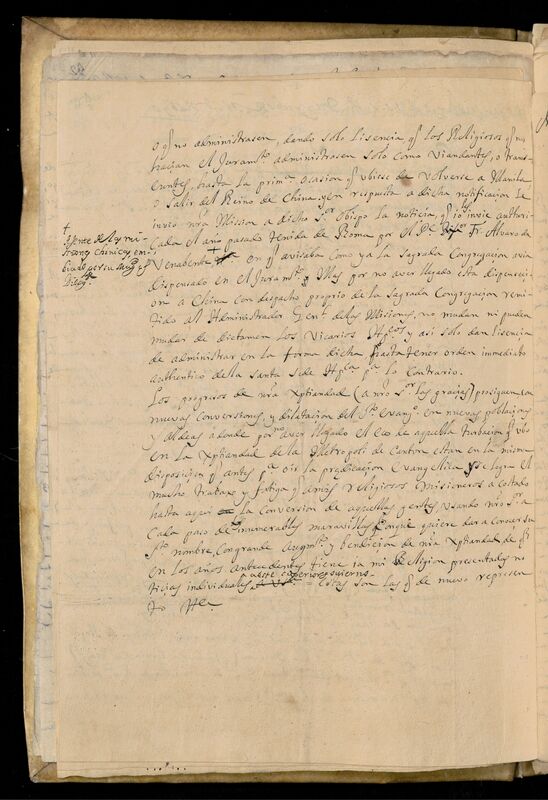 o q̃ no administrasen, dando solo Licencia q̃ los Religiosos q̃ no
hacian el Juram.to administrasen solo como Viandantes, o tran-
seuntes, hasta la prim.a ocasion q̃ ubiese de volverse a Manila
o salir del Reino de China; y en respuesta a dicha notificacion le
invio nr̃a Mission a dicho S.or Obispo la noticia, q̃ io invie autori-
cada el año pasado tenida de Roma por el P.e Fr. Alvaro de
Venabente en q̃ avisaba como ya la Sagrada Congregacion avia
dispensado en el Juram.to Mas por no aver llegado esta dispensaci-
on a China con despacho proprio de la Sagrada Congregacion remi-
tido al Administrador Gen.l de las Misiones, no mudan ni pueden
mudar de dictamen los Vicarios App.cos, y asi solo dan licencia
de administrar en la forma dicha hasta tener orden immediato
authentico de la Santa Sede App.ca p.a lo Contrario.
Los progresos de nr̃a Xptiandad (a nrõ S.or las gracias) prosiguen con
nuevas Conversiones, y dilatacion del S.to Evang.o en nuevas poblaciones
y Aldeas adonde por no aver llegado el eco de aquella turbacion q̃ ubo
en la Xptiandad de la Metropoli de Canton estan en la misma
disposicion q̃ antes p.a oir la predicacion Evangelica, y se logra el
mucho trabaxo y fatiga q̃ a mis religiosos Misioneros a Costado
hasta aqui la Conversion de aquellas gentes usando nrõ S.or a
Cada paso de innumerables maravillas Conque quiere dar a Conocer su
S.to nombre, Con grande Augm.to y bendicion de nr̃a Xptiandad de q̃
en los años antecedentes tiene ia mi Religion presentadas no-
ticias individuales a este Superior Govierno. estas son las q̃ de nuevo represen
to